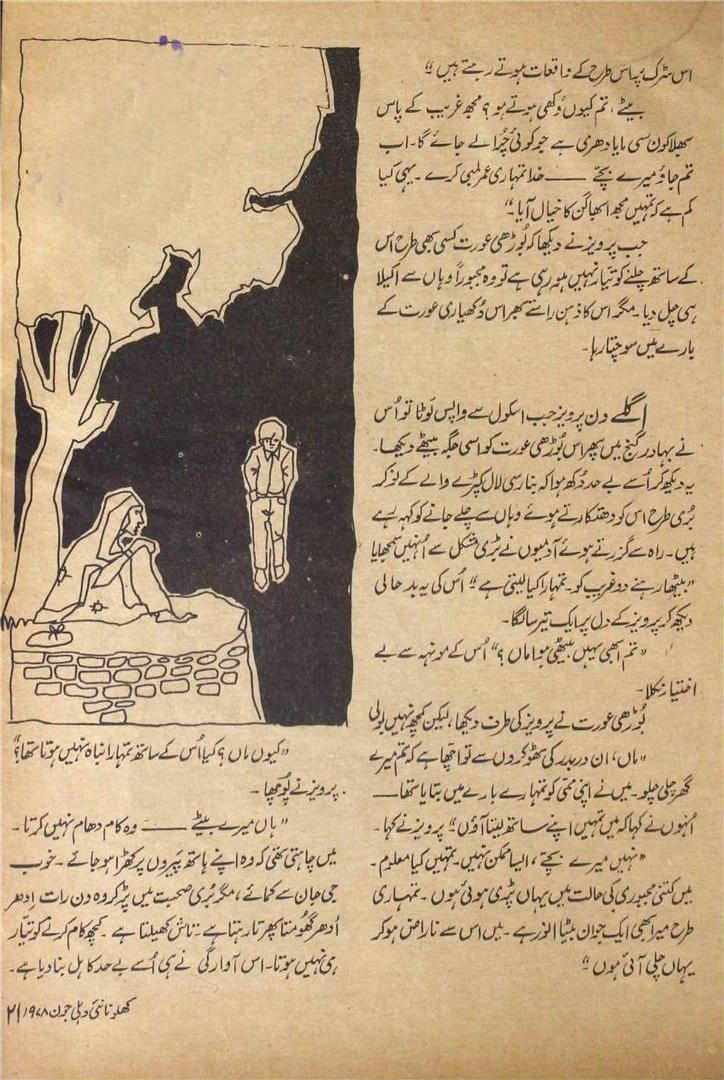 اس سڑک پہ اس طرح کے واقعات ہوتے رہتے ہیں“
بیٹے، تم کیوں دُکھی ہوتے ہو؟ مجھ غریب کے پاس
بھلا کون سی مایا دھری ہے جو کوئی چُرا لے جائے گا۔ اب
تم جاؤ میرے بچے —— خدا تمہاری عمر لمبی کرے۔ یہی کیا
کم ہے کہ تمہیں مجھ ابھاگن کا خیال آیا۔“
جب پرویز نے دیکھا کہ بُوڑھی عورت کسی بھی طرح اس
کے ساتھ چلنے کو تیار نہیں ہو رہی ہے تو وہ مجبوراً وہاں سے اکیلا
ہی چل دیا۔ مگر اس کا ذہن راستے بھر اس دُکھیاری عورت کے
بارے میں سوچتا رہا۔
اگلے دن پرویز جب اسکول سے واپس لَوٹا تو اُس
نے بہادر گنج میں پھر اس بُوڑھی عورت کو اسی جگہ بیٹھے دیکھا۔
یہ دیکھ کر اُسے بے حد دُکھ ہوا کہ بنارسی لال کپڑے والے کے نوکر
بُری طرح اس کو دھتکارتے ہوئے وہاں سے چلے جانے کو کہہ رہے
ہیں۔ راہ سے گزرتے ہوئے آدمیوں نے بڑی مشکل سے اُنہیں سمجھایا
”بیٹھا رہنے دو غریب کو۔ تمہارا کیا لیتی ہے“ اُس کی یہ بد حالی
دیکھ کر پرویز کے دل پر ایک تیر سا لگا۔
”تم ابھی یہیں بیٹھی ہو اماں؟“ اُس کے مونہہ سے بے
اختیار نکلا۔
بُوڑھی عورت نے پرویز کی طرف دیکھا، لیکن کچھ نہیں بولی
”ماں، ان در بدر کی ٹھوکروں سے تو اچھا ہے کہ تم میرے
گھر چلی چلو۔ میں نے اپنی ممّی کو تمہارے بارے میں بتایا تھا ——
اُنہوں نے کہا کہ میں تمہیں اپنے ساتھ لیتا آؤں“ پرویز نے کہا۔
”نہیں میرے بچے، ایسا ممکن نہیں۔ تمہیں کیا معلوم۔
میں کتنی مجبوری کی حالت میں یہاں پڑی ہوئی ہوں۔ تمہاری
طرح میرا بھی ایک جوان بیٹا انور ہے۔ میں اس سے ناراض ہو کر
یہاں چلی آئی ہوں“
”کیوں ماں؟ کیا اُس کے ساتھ تمہارا نباہ نہیں ہوتا تھا؟“
پرویز نے پُوچھا۔
”ہاں میرے بیٹے —— وہ کام دھام نہیں کرتا۔
میں چاہتی تھی کہ وہ اپنے ہاتھ پیروں پر کھڑا ہو جائے۔ خوب
جی جان سے کمائے، مگر بُری صحبت میں پڑ کر وہ دن رات اِدھر
اُدھر گھُومتا پھرتا رہتا ہے۔ تاش کھیلتا ہے۔ کچھ کام کرنے کو تیّار
ہی نہیں ہوتا۔ اس آوارگی نے ہی اُسے بے حد کاہل بنا دیا ہے۔
کھلونا نئی دہلی جون ۱۹۷۸/ ۲۱